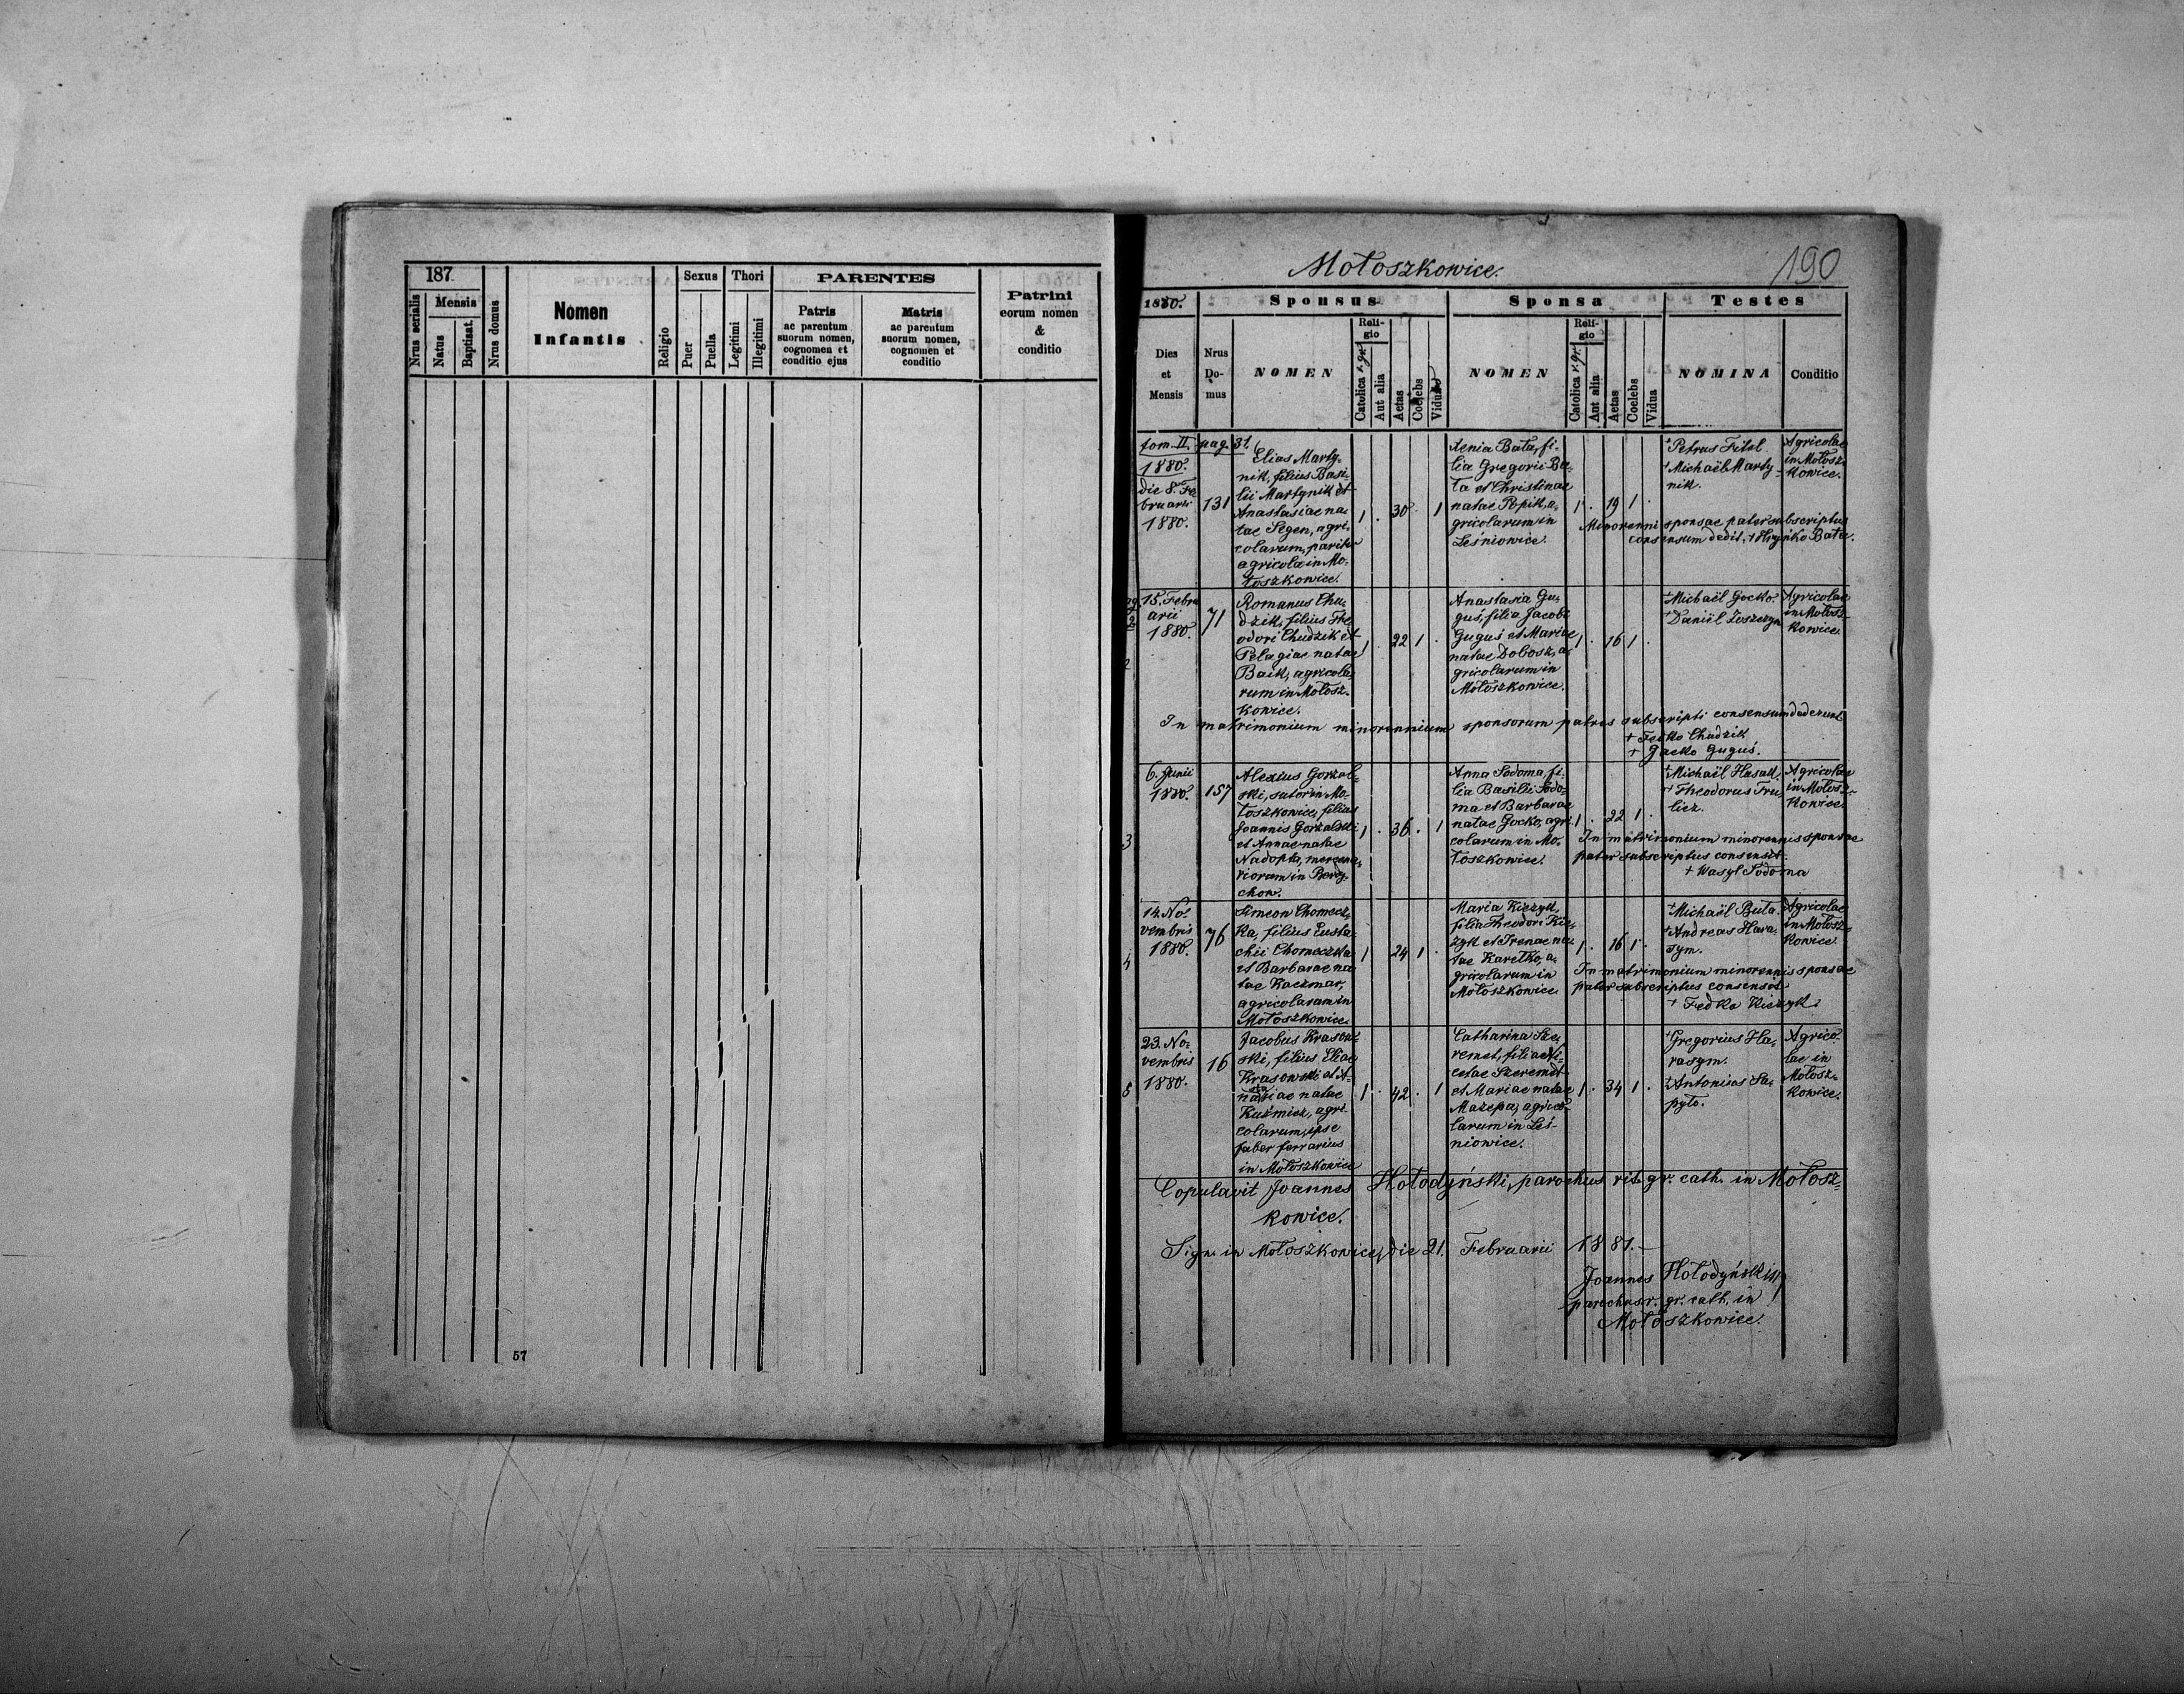 187
Nrus serialis
Mensis
Natus
Baptisat.
Nrus domus
Nomen
Infantis
Religio
Sexus
Puer
Puella
Thori
Legitimi
Illegitimi
PARENTES
Patris
ac parentum
suorum nomen,
cognomen et
conditio ejus
Matris
ac parentum
suorum nomen,
cognomen et
conditio
Patrini
eorum nomen
&
conditio
57
Mołoszkowice.
190
1880.
Sponsus
Sponsa
Testes
Dies
et
Mensis
Nrus
Do-
mus
NOMEN
Reli-
gio
Catolica r. gr.
Aut alia
Aetas
Coelebs
Viduus
NOMEN
Reli-
gio
Catolica r. gr.
Aut alia
Aetas
Coelebs
Vidua
NOMINA
Conditio
tom II. pag. 31.
1880.
die 8. Fe-
bruarii
1880.
131
Elias Marty-
nik, filius Basi-
lii Martynik et
Anastasiae na-
tae Segen, agri-
colarum, pariter
agricola in Mo-
łoszkowice.
1 . 30 . 1
Xenia Bata, fi-
lia Gregorii Ba-
ta et Christinae
natae Popik, a-
gricolarum in
Leśniowice.
1 . 19 1 .
+ Petrus Fitel
+ Michaël Marty-
nik.
Agricolae
in Mołosz-
kowice.
Minorenni sponsae pater subscriptus
consensum dedit. + Hryńko Bata.
15. Febru-
arii
1880.
71
Romanus Chu-
dzik, filius The-
odori Chudzik et
Pelagiae natae
Baik, agricola-
rum in Mołosz-
kowice.
1 . 22 1 .
Anastasia Gu-
guś, filia Jacobi
Guguś et Mariae
natae Dobosz, a-
gricolarum in
Mołoszkowice.
1 . 16 1 .
+ Michaël Gocko.
+ Daniël
Agricolae
in Mołosz-
kowice.
2
In matrimonium minorennium sponsorum patres subscripti consensum dederunt
+ Fedko Chudzik
+ Jacko Guguś.
6. Junii
1880.
157
Alexius Gorzal-
ski, sutor in Mo-
łoszkowice, filius
Joannis Gorzalski
et Annae natae
Nadopta, mercena-
riorum in Berdy-
chow.
1 . 36 . 1
Anna Sodoma, fi-
lia Basilii Sodo-
ma et Barbarae
natae Gocko, agri-
colarum in Mo-
łoszkowice.
1 . 22 1 .
+ Michaël Husak.
+ Theodorus Fru-
licz.
Agricolae
in Mołosz-
kowice.
3
In matrimonium minorennis sponsae
pater subscriptus consensit.
+ Wasyl Sodoma
14. No-
vembris
1880.
76
Simeon Chomecz-
ka, filius Eusta-
chii Chomeczka
et Barbarae na-
tae Kaczmar,
agricolarum in
Mołoszkowice.
1 24 1 .
Maria Kiczyk,
filia Theodori Kic-
zyk et Irenae na-
tae Karetko, a-
gricolarum in
Mołoszkowice.
1 . 16 1 .
+ Michaël Buta.
+ Andreas Hara-
sym.
Agricolae
in Mołosz-
kowice.
4
In matrimonium minorennis sponsae
pater subscriptus consensit
+ Fedko Kiczyk.
23. No-
vembris
1880.
16
Jacobus Krasow-
ski, filius Eliae
Krasowski et A-
nastasiae natae
Kuźmicz, agri-
colarum, ipse
faber ferrarius
in Mołoszkowice
1 . 42 . 1
Catharina Sze-
remet, filia Ni-
cetae Szeremet
et Mariae natae
Mazepa, agrico-
larum in Leś-
niowice.
1 . 34 1 .
+ Gregorius Ha-
rasym.
+ Antonius Sa-
pyto.
Agrico-
lae in
Mołosz-
kowice.
5
Copulavit Joannes Hołodyński, parochus rit. gr. cath. in Mołosz-
kowice.
Sign. in Mołoszkowice, die 21. Februarii 1881.
Joannes Hołodyński
parochus r. gr. cath. in
Mołoszkowice.